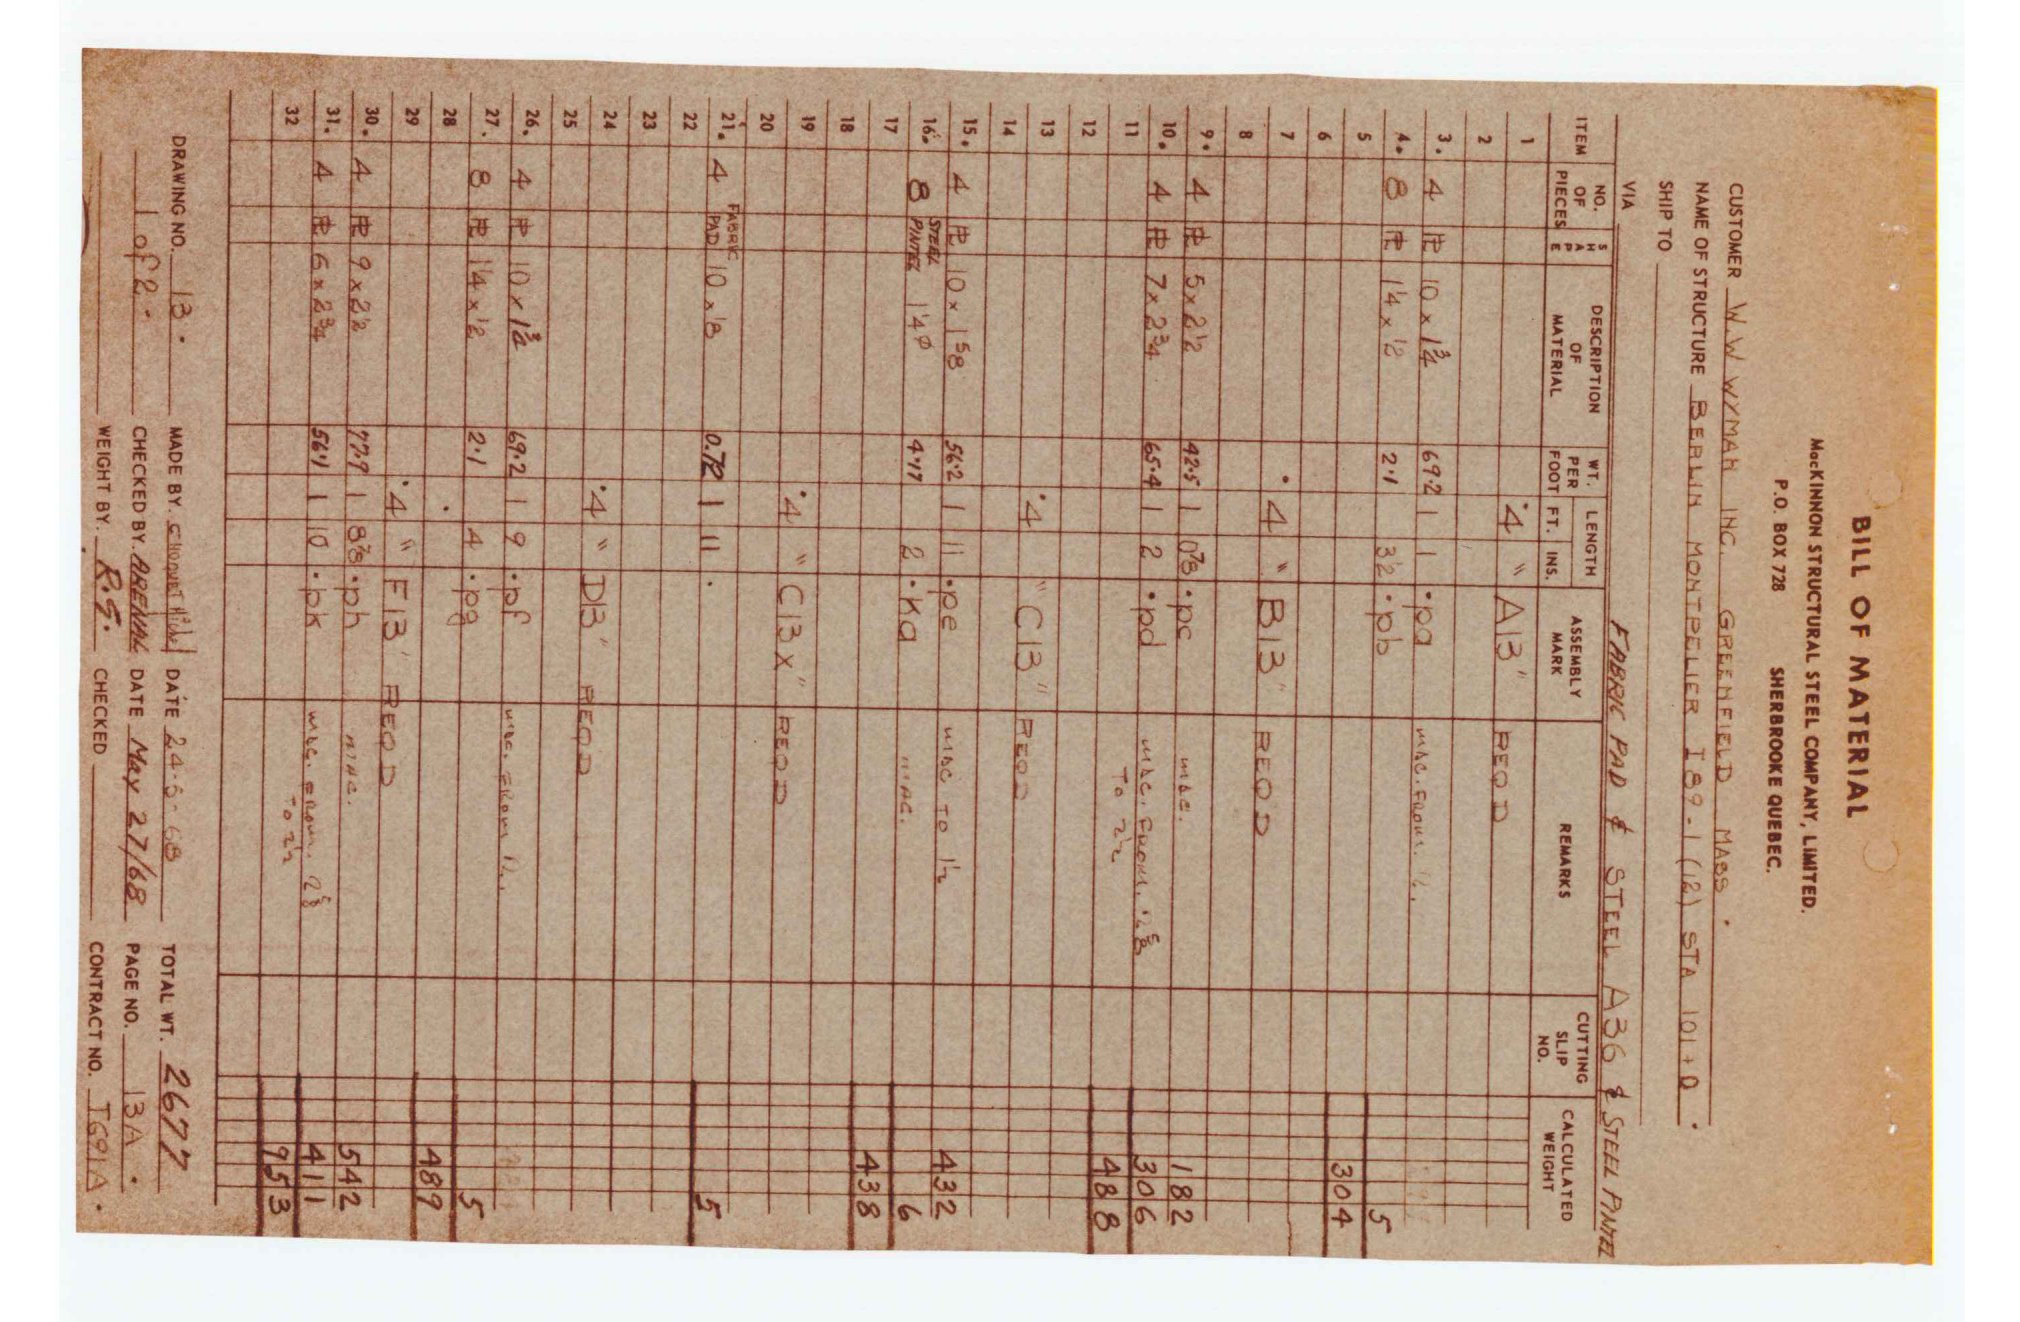 BILL OF MATERIAL
MacKINNON STRUCTURAL STEEL COMPANY, LIMITED.
P.O. BOX 728 SHERBROOKE QUEBEC.
CUSTOMER W.W WYMAN INC. GREENFIELD MASS.
NAME OF STRUCTURE BERLIN MONTPELIER I 89-1 (12) STA 101+0.
SHIP TO
VIA FABRIC PAD & STEEL A36 & STEEL PINTEL
ITEM NO. OF PIECES SHAPE DESCRIPTION OF MATERIAL WT. PER FOOT LENGTH FT. INS. ASSEMBLY MARK REMARKS CUTTING SLIP NO. CALCULATED WEIGHT
1 4 " A13" REQD
2
3. 4 PL 10 x 1¾ 69.2 1 1 pa mac. FROM
4. 8 PL 1¼ x ½ 2.1 3½ pb 5
5 304
6
7 4 " B13" REQD
8
9. 4 PL 5 x 2½ 42.5 1 0⅞ pc mac. 182
10. 4 PL 7 x 2¾ 65.4 1 2 pd mac. FROM 2⅝ 306
11 TO 2½ 488
12
13 4 " C13" REQD
14
15. 4 PL 10 x 1⅝ 56.2 1 11 pe mac TO 1½ 432
16. 8 STEEL PINTEL 1¼ ø 4.17 2 ka mac. 6
17 438
18
19 4 " C13x" REQD
20
21. 4 FABRIC PAD 10 x ⅛ 0.72 1 11 5
22
23
24 4 " D13" REQD
25
26. 4 PL 10 x 1¾ 69.2 1 9 pf mac. FROM
27. 8 PL 1¼ x ½ 2.1 4 pg 5
28 489
29 4 " F13" REQD
30. 4 PL 9 x 2½ 77.7 1 8⅞ ph mac. 542
31. 4 PL 6 x 2¾ 56.1 1 10 pk mac. FROM 2⅝ 411
32 TO 2½ 953
DRAWING NO. 13. MADE BY DATE 24-5-68 TOTAL WT. 2677
1 of 2. CHECKED BY ARENAL DATE May 27/68 PAGE NO. 13A.
WEIGHT BY. R.G. CHECKED CONTRACT NO. T691A.